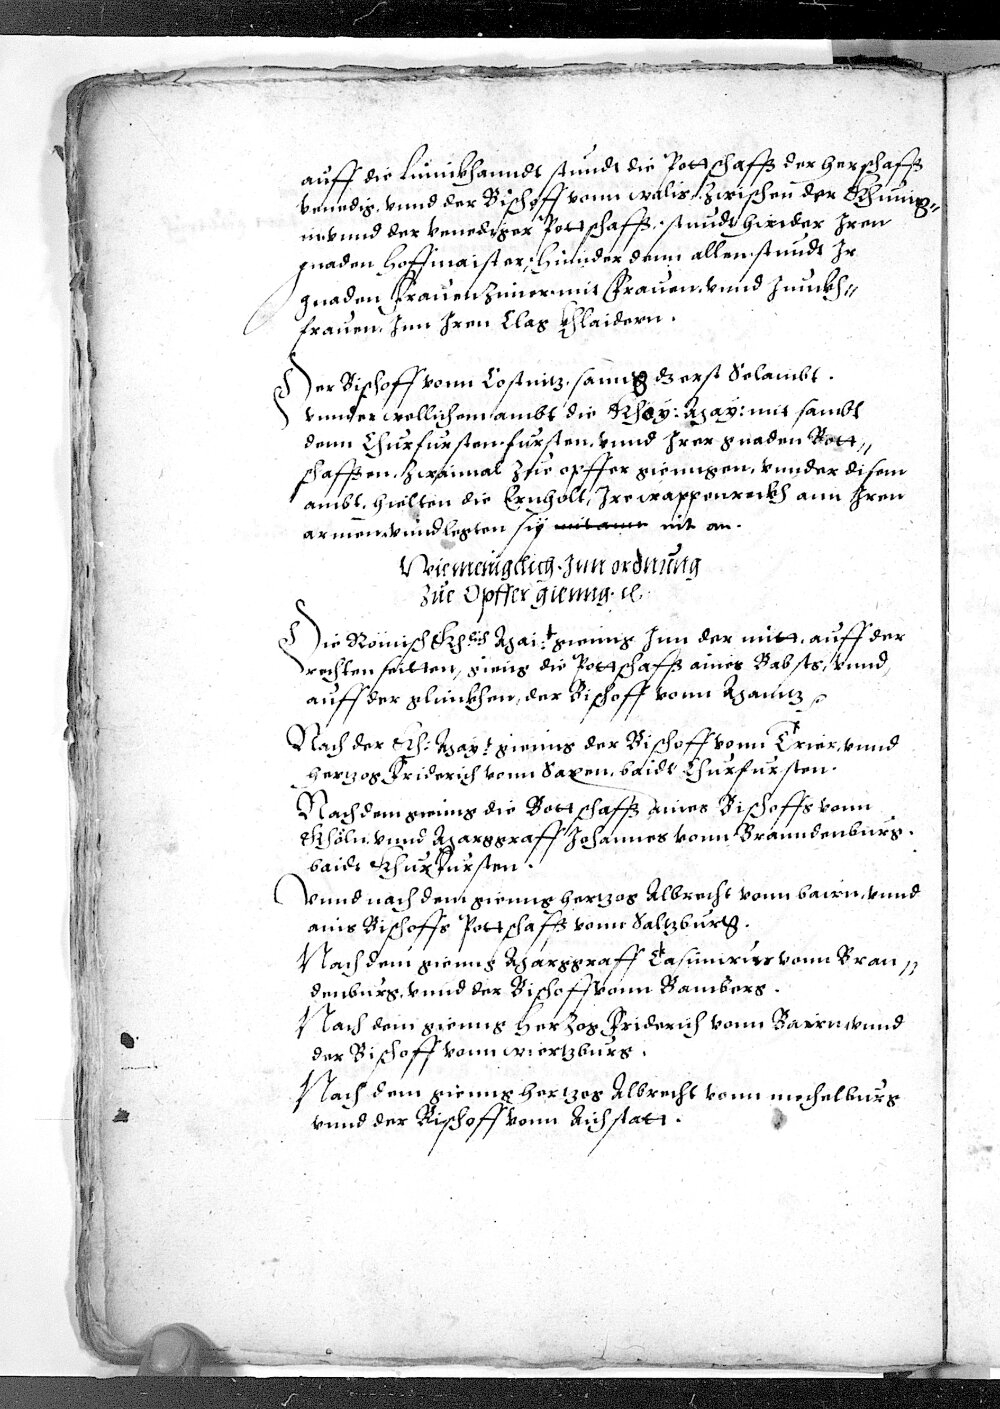 auff die linnckhanndt stundt die Pottschafft der herschafft
venedig. vnnd der Bischoff vonn walis. Zwischen der Khunig„
in vnnd der venediger Pottschafft. stundt hinder Iren
gnaden hoffmaister. Hinnder denn allen. stundt Ir
gnaden Frauen Zimer. mit Frauen. vnnd Junckh„
frauen. Inn Iren Clag Khlaidern.
Der Bischoff vonn Costnitz. sanng dz erst Selambt.
vnnder wellichem ambt die Khöy: May: mit sambt
denn Churfursten. fursten. vnnd Irer gnaden Bott„
schafften. Zwaimal Zue opffer gienngen, vnnder disem
ambt. hielten die Ernholt, Ire wappenreckh ann Iren
armen. vnnd legten sy nit an.
Wie menigclich. Inn ordnung
Zue Opffer gienng. etc.
Die Römisch Khöy May: gienng Inn der mitt. auff der
rechten seitten, gieng die Pottschafft aines Babsts, vnnd,
auff der glinckhen, der Bischoff vonn Maintz
Nach der Kh: May: gienng der Bischoff vonn Trier, vnnd
hertzog Friderich vonn Saxen. baidt Churfursten.
Nachdem gienng die Bottschafft aines Bischoffs vonn
Khöln. vnnd Marggraff Johannes vonn Branndenburg.
baidt Khurfursten.
Vnnd nach dem gienng hertzog Albrecht vonn bairn, vnnd
ains Bischoffs Pottschafft vonn Saltzburg.
Nach dem gienng Marggraff Casimirus vonn Bran„
denburg, vnnd der Bischoff vonn Bamberg.
Nach dem gienng Hertzog Friderich vonn Bairn. vnnd
der Bischoff vonn wiertzburg.
Nach dem gienng hertzog Albrecht vonn mechelburg
vnnd der Bischoff vonn Aichstatt.